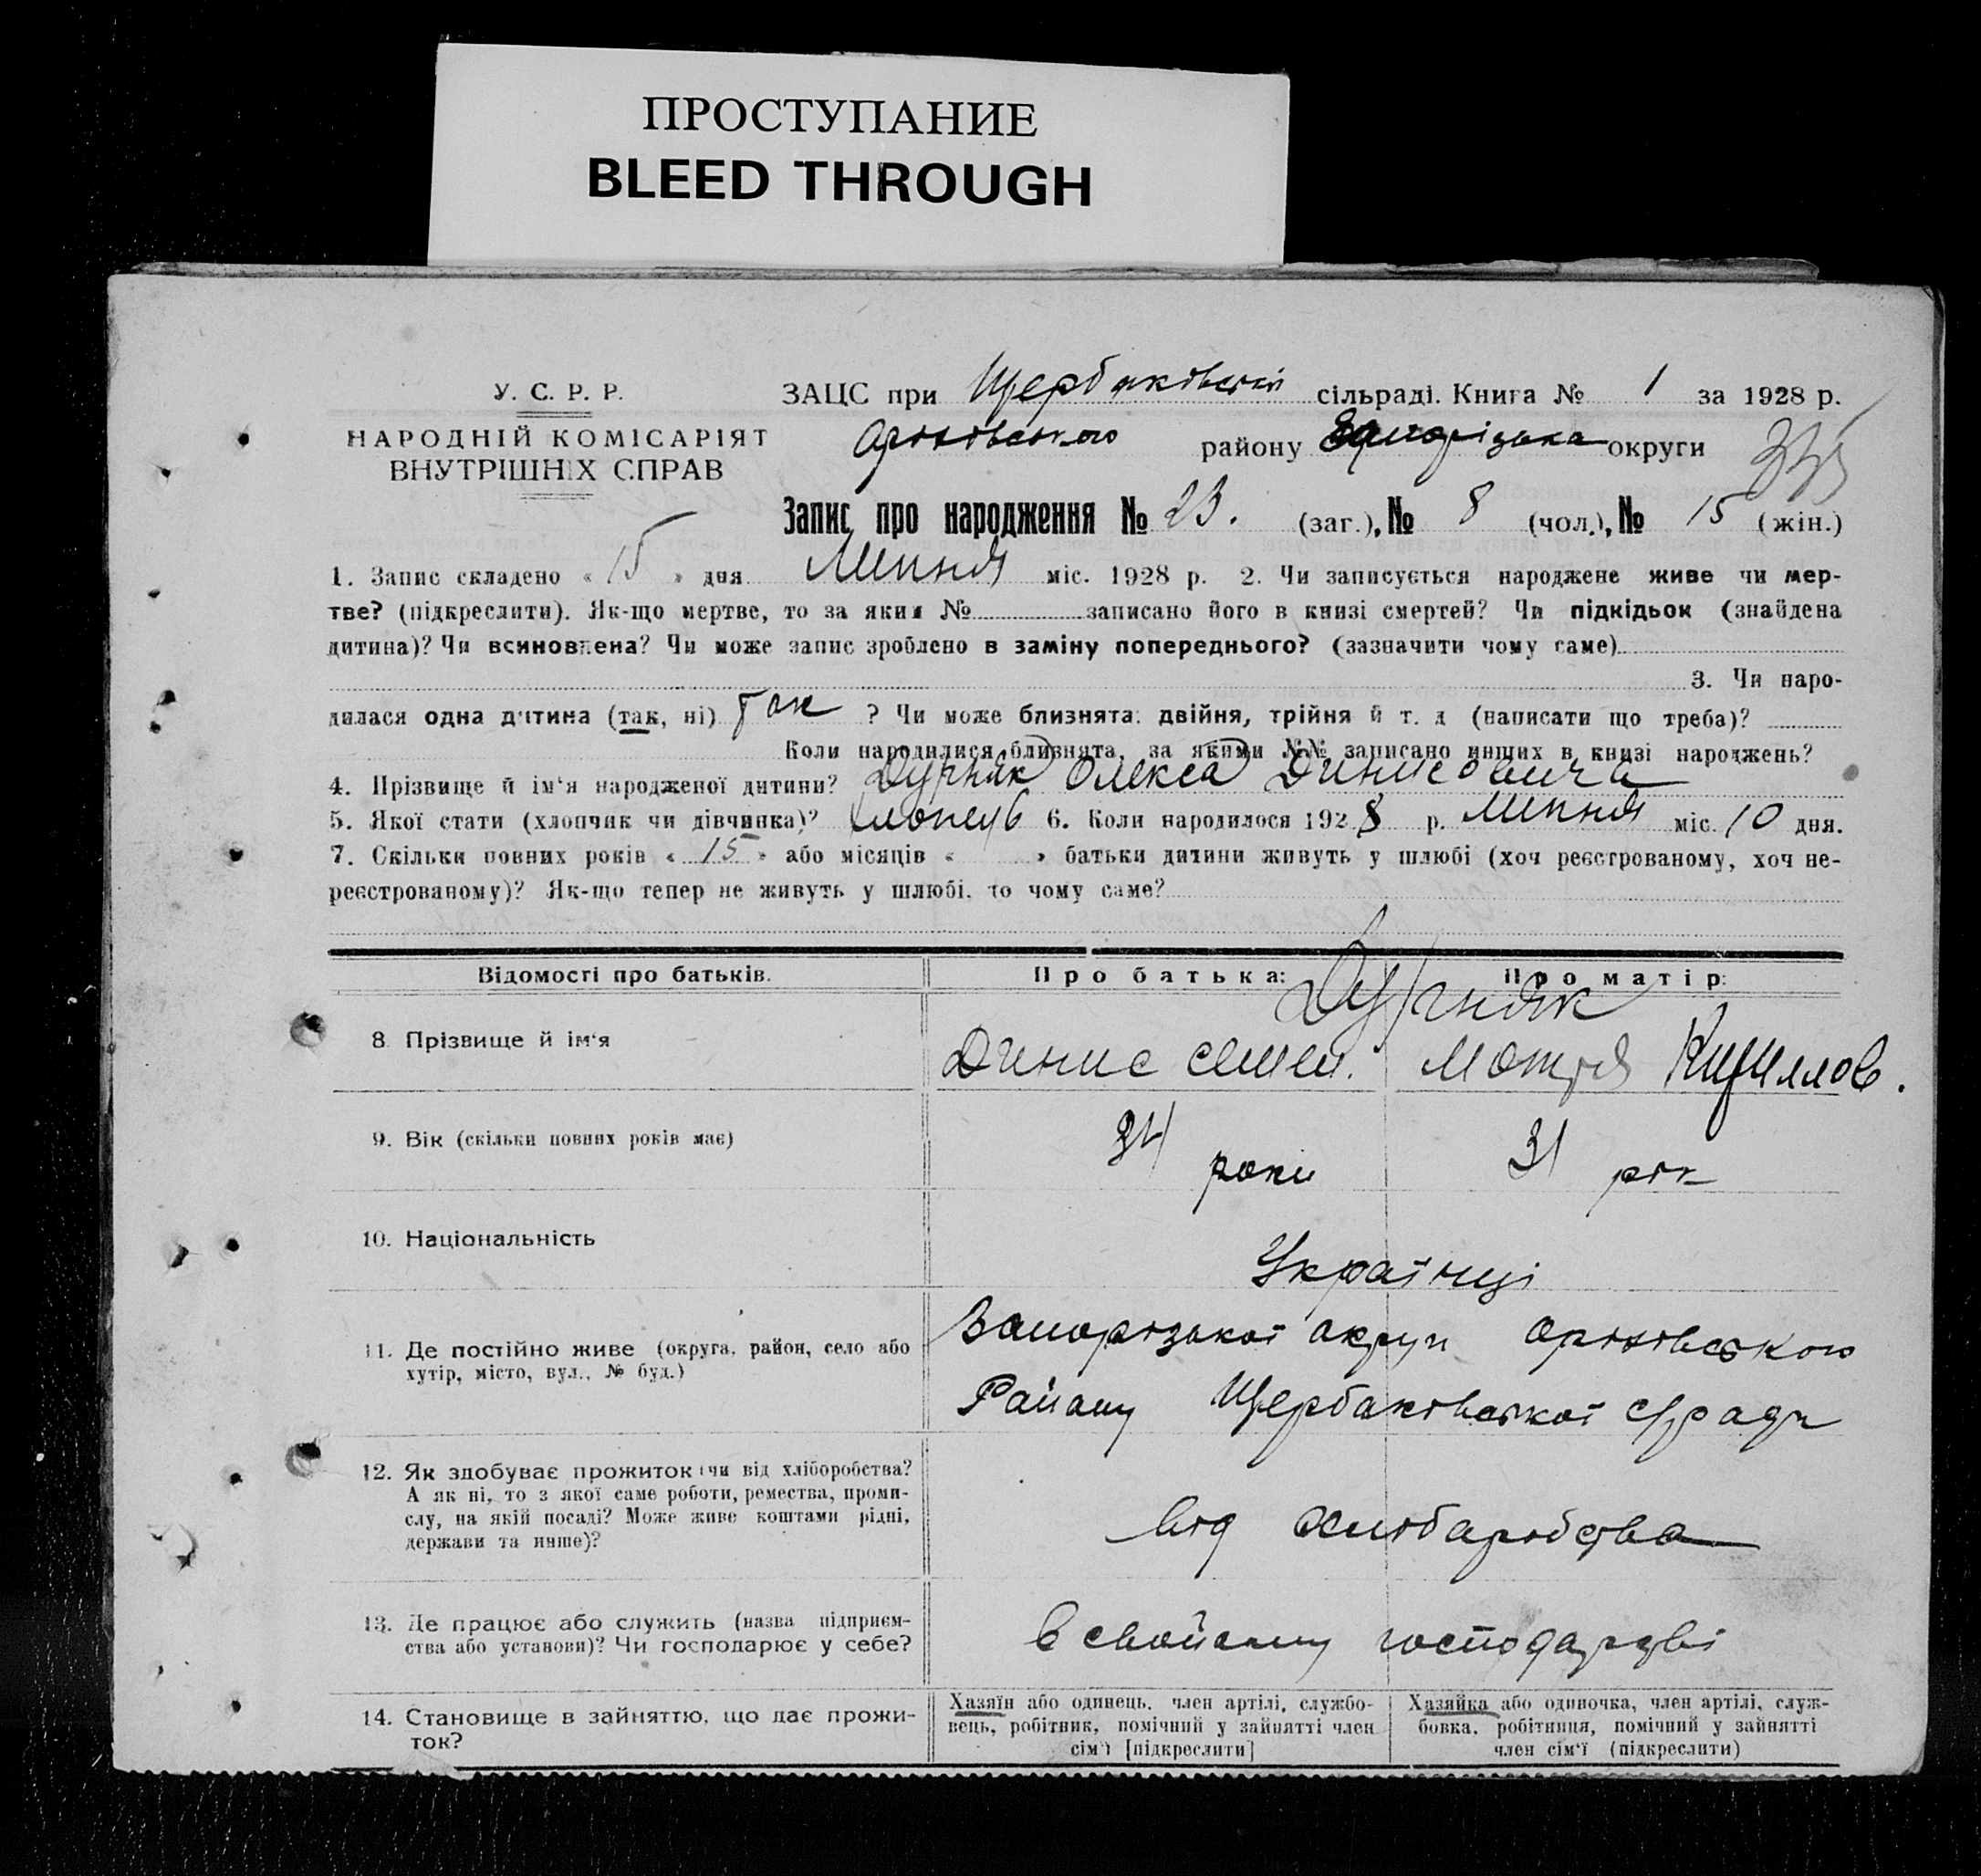 ПРОСТУПАНИЕ
BLEED THROUGH
У. С. Р. Р.
НАРОДНІЙ КОМІСАРІЯТ
ВНУТРІШНІХ СПРАВ
ЗАЦС при Щербаківській сільраді. Книга № 1 за 1928 р.
Оріхівського району Запорізька округи
Запис про народження № 23. (заг.), № 8 (чол.), № 15 (жін.)
1. Запис складено « 15 » дня Липня міс. 1928 р. 2. Чи записується народжене живе чи мер-
тве? (підкреслити). Як-що мертве, то за яким № записано його в книзі смертей? Чи підкідьок (знайдена
дитина)? Чи всиновлена? Чи може запис зроблено в заміну попереднього? (зазначити чому саме)
3. Чи наро-
дилася одна дитина (так, ні) Так ? Чи може близнята: двійня, трійня й т. д (написати що треба)?
Коли народилися близнята, за якими №№ записано инших в книзі народжень?
4. Прізвище й ім'я народженої дитини? Дурняк Олекса Динисовича
5. Якої стати (хлопчик чи дівчинка)? Хлопець 6. Коли народилося 1928 р. Липня міс. 10 дня.
7. Скільки повних років « 15 » або місяців « » батьки дитини живуть у шлюбі (хоч реєстрованому, хоч не-
реєстрованому)? Як-що тепер не живуть у шлюбі, то чому саме?
Відомості про батьків. Про батька: Про матір:
Дурняк
8. Прізвище й ім'я Динис Семен. Мотря Кирилов.
9. Вік (скільки повних років має) 34 роки 31 рік
10. Національність Українці
11. Де постійно живе (округа, район, село або
хутір, місто, вул., № буд.)
Запорізької округи Оріхівського
Району Щербаківської с/ради
12. Як здобуває прожиток (чи від хліборобства?
А як ні, то з якої саме роботи, ремества, проми-
слу, на якій посаді? Може живе коштами рідні,
держави та инше)?
Від хліборобства
13. Де працює або служить (назва підприєм-
ства або установи)? Чи господарює у себе?
В свойому господарстві
14. Становище в зайняттю, що дає прожи-
ток?
Хазяїн або одинець, член артілі, службо-
вець, робітник, помічний у зайнятті член
сім'ї [підкреслити]
Хазяйка або одиночка, член артілі, служ-
бовка, робітниця, помічний у зайнятті
член сім'ї (підкреслити)